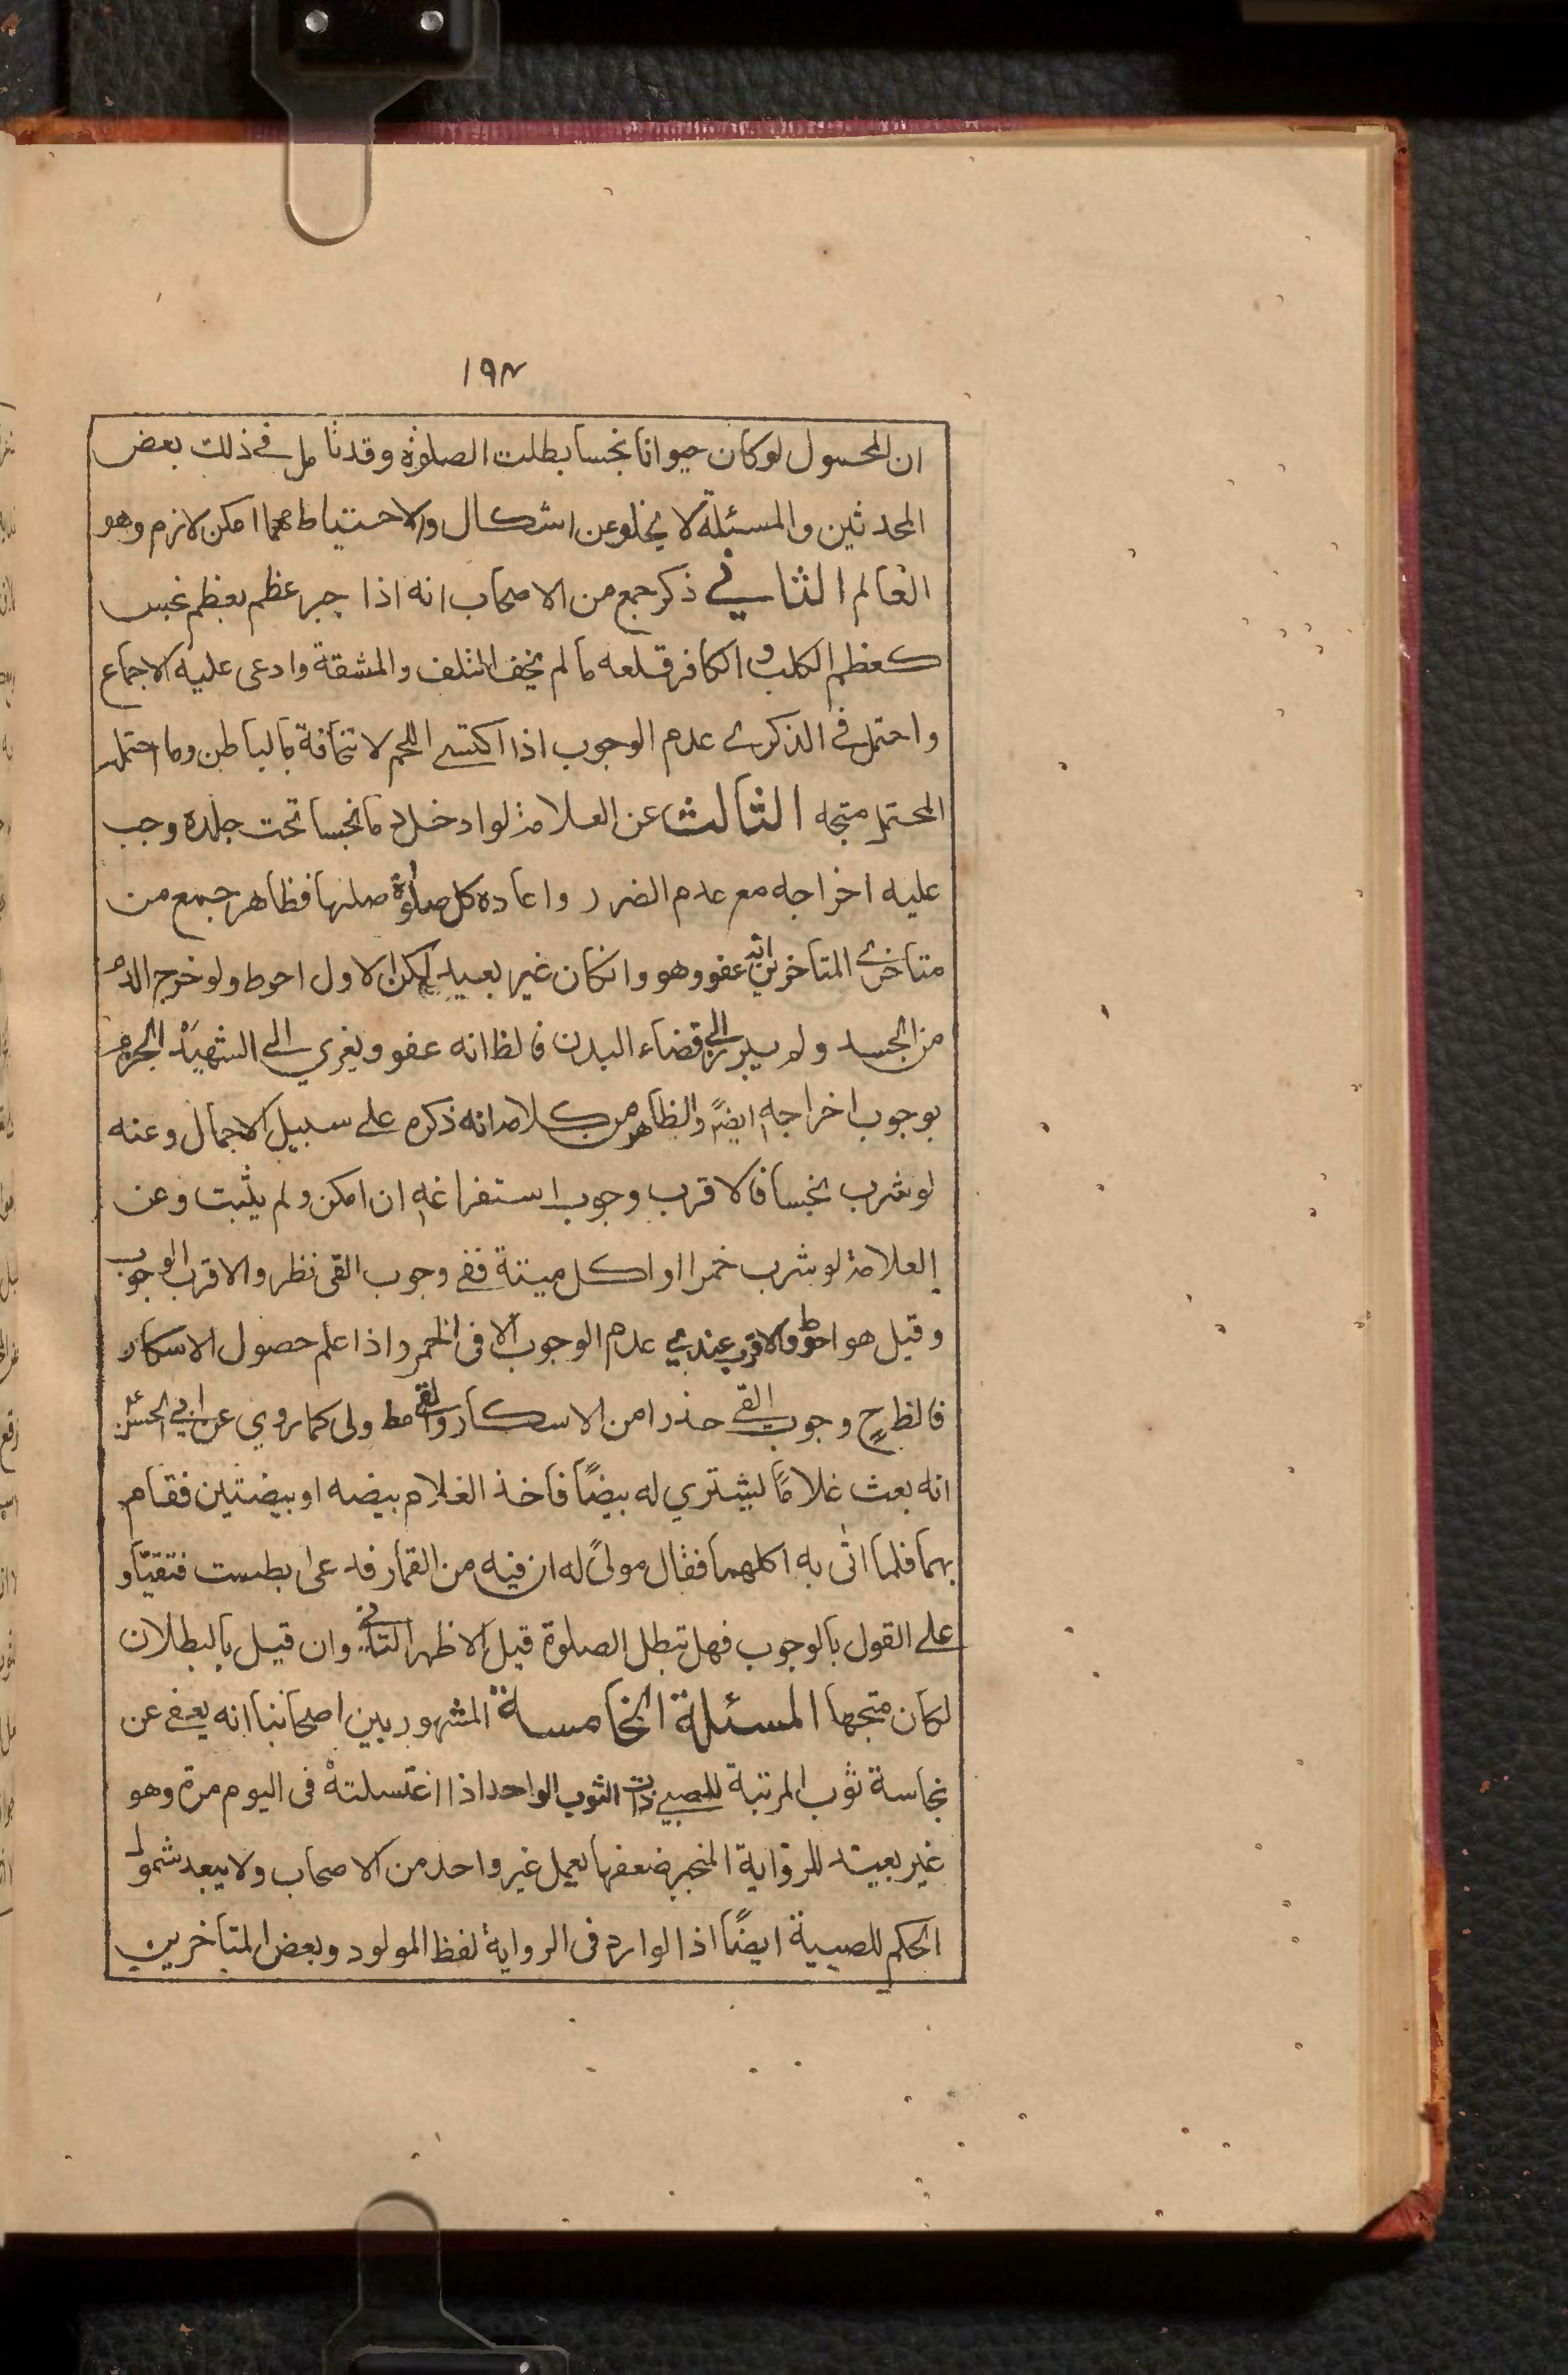 ١٩٨
ان المحمول لو كان حيوانا نجسا بطلت الصلوة وقد تامل في ذلك بعض
المحدثين والمسئلة لا يخلو عن اشكال والاحتياط مهما امكن لازم وهو
العالم الثاني ذكر جمع من الاصحاب انه اذا جبر عظم بعظم نجس
كعظم الكلب و الكافر قلعه ما لم يخف التلف والمشقة وادعى عليه الاجماع
واحتمل في الذكرى عدم الوجوب اذا اكتسى اللحم لالتحاقة بالباطن وما احتمله
المحتمل متجه الثالث عن العلامة لو ادخل دما نجسا تحت جلده وجب
عليه اخراجه مع عدم الضرر واعاده كل صلوة صلها فظاهر جمع من
متاخرى المتأخرين انه عفو وهو وانكان غير بعيد لكن الاول احوط ولو خرج الدم
من الجسد ولم يبرز الى فضاء البدن فالظ انه عفو ويغرى الى الشهيد الجزم
بوجوب اخراجه ايضً والظاهر من كلامه انه ذكره على سبيل الاجمال وعنه
لو شرب نجسا فالاقرب وجوب استفراغه ان امكن ولم يثبت وعن
العلامة لو شرب خمرا او اكل ميتة ففى وجوب القى نظر والاقرب الوجوب
وقيل هو احوط والاقرب عندي عدم الوجوب الا فى الخمر واذا علم حصول الاسكار
فالظ ح وجوب القى حذرا من الاسكار والقى مط ولى كما روي عن ابي الحسن ع
انه بعث غلامًا ليشتري له بيضًا فاخذ الغلام بيضه او بيضتين فقام
بهما فلما اتى به اكلهما فقال مولىً له ان فيه من القمار فدعى بطست فتقيّأ و
على القول بالوجوب فهل تبطل الصلوة قيل الاظهر الثانى وان قيل بالبطلان
لكان متجها المسئلة الخامسة المشهور بين اصحابنا انه يعفى عن
نجاسة ثوب المرتبة للصبى ذات الثوب الواحد اذا اغتسلته فى اليوم مرة وهو
غير بعيد للرواية المنجبر ضعفها بعمل غير واحد من الاصحاب ولا يبعد شمول
الحكم للصبية ايضًا اذ الوارد فى الرواية لفظ المولود وبعض المتأخرين